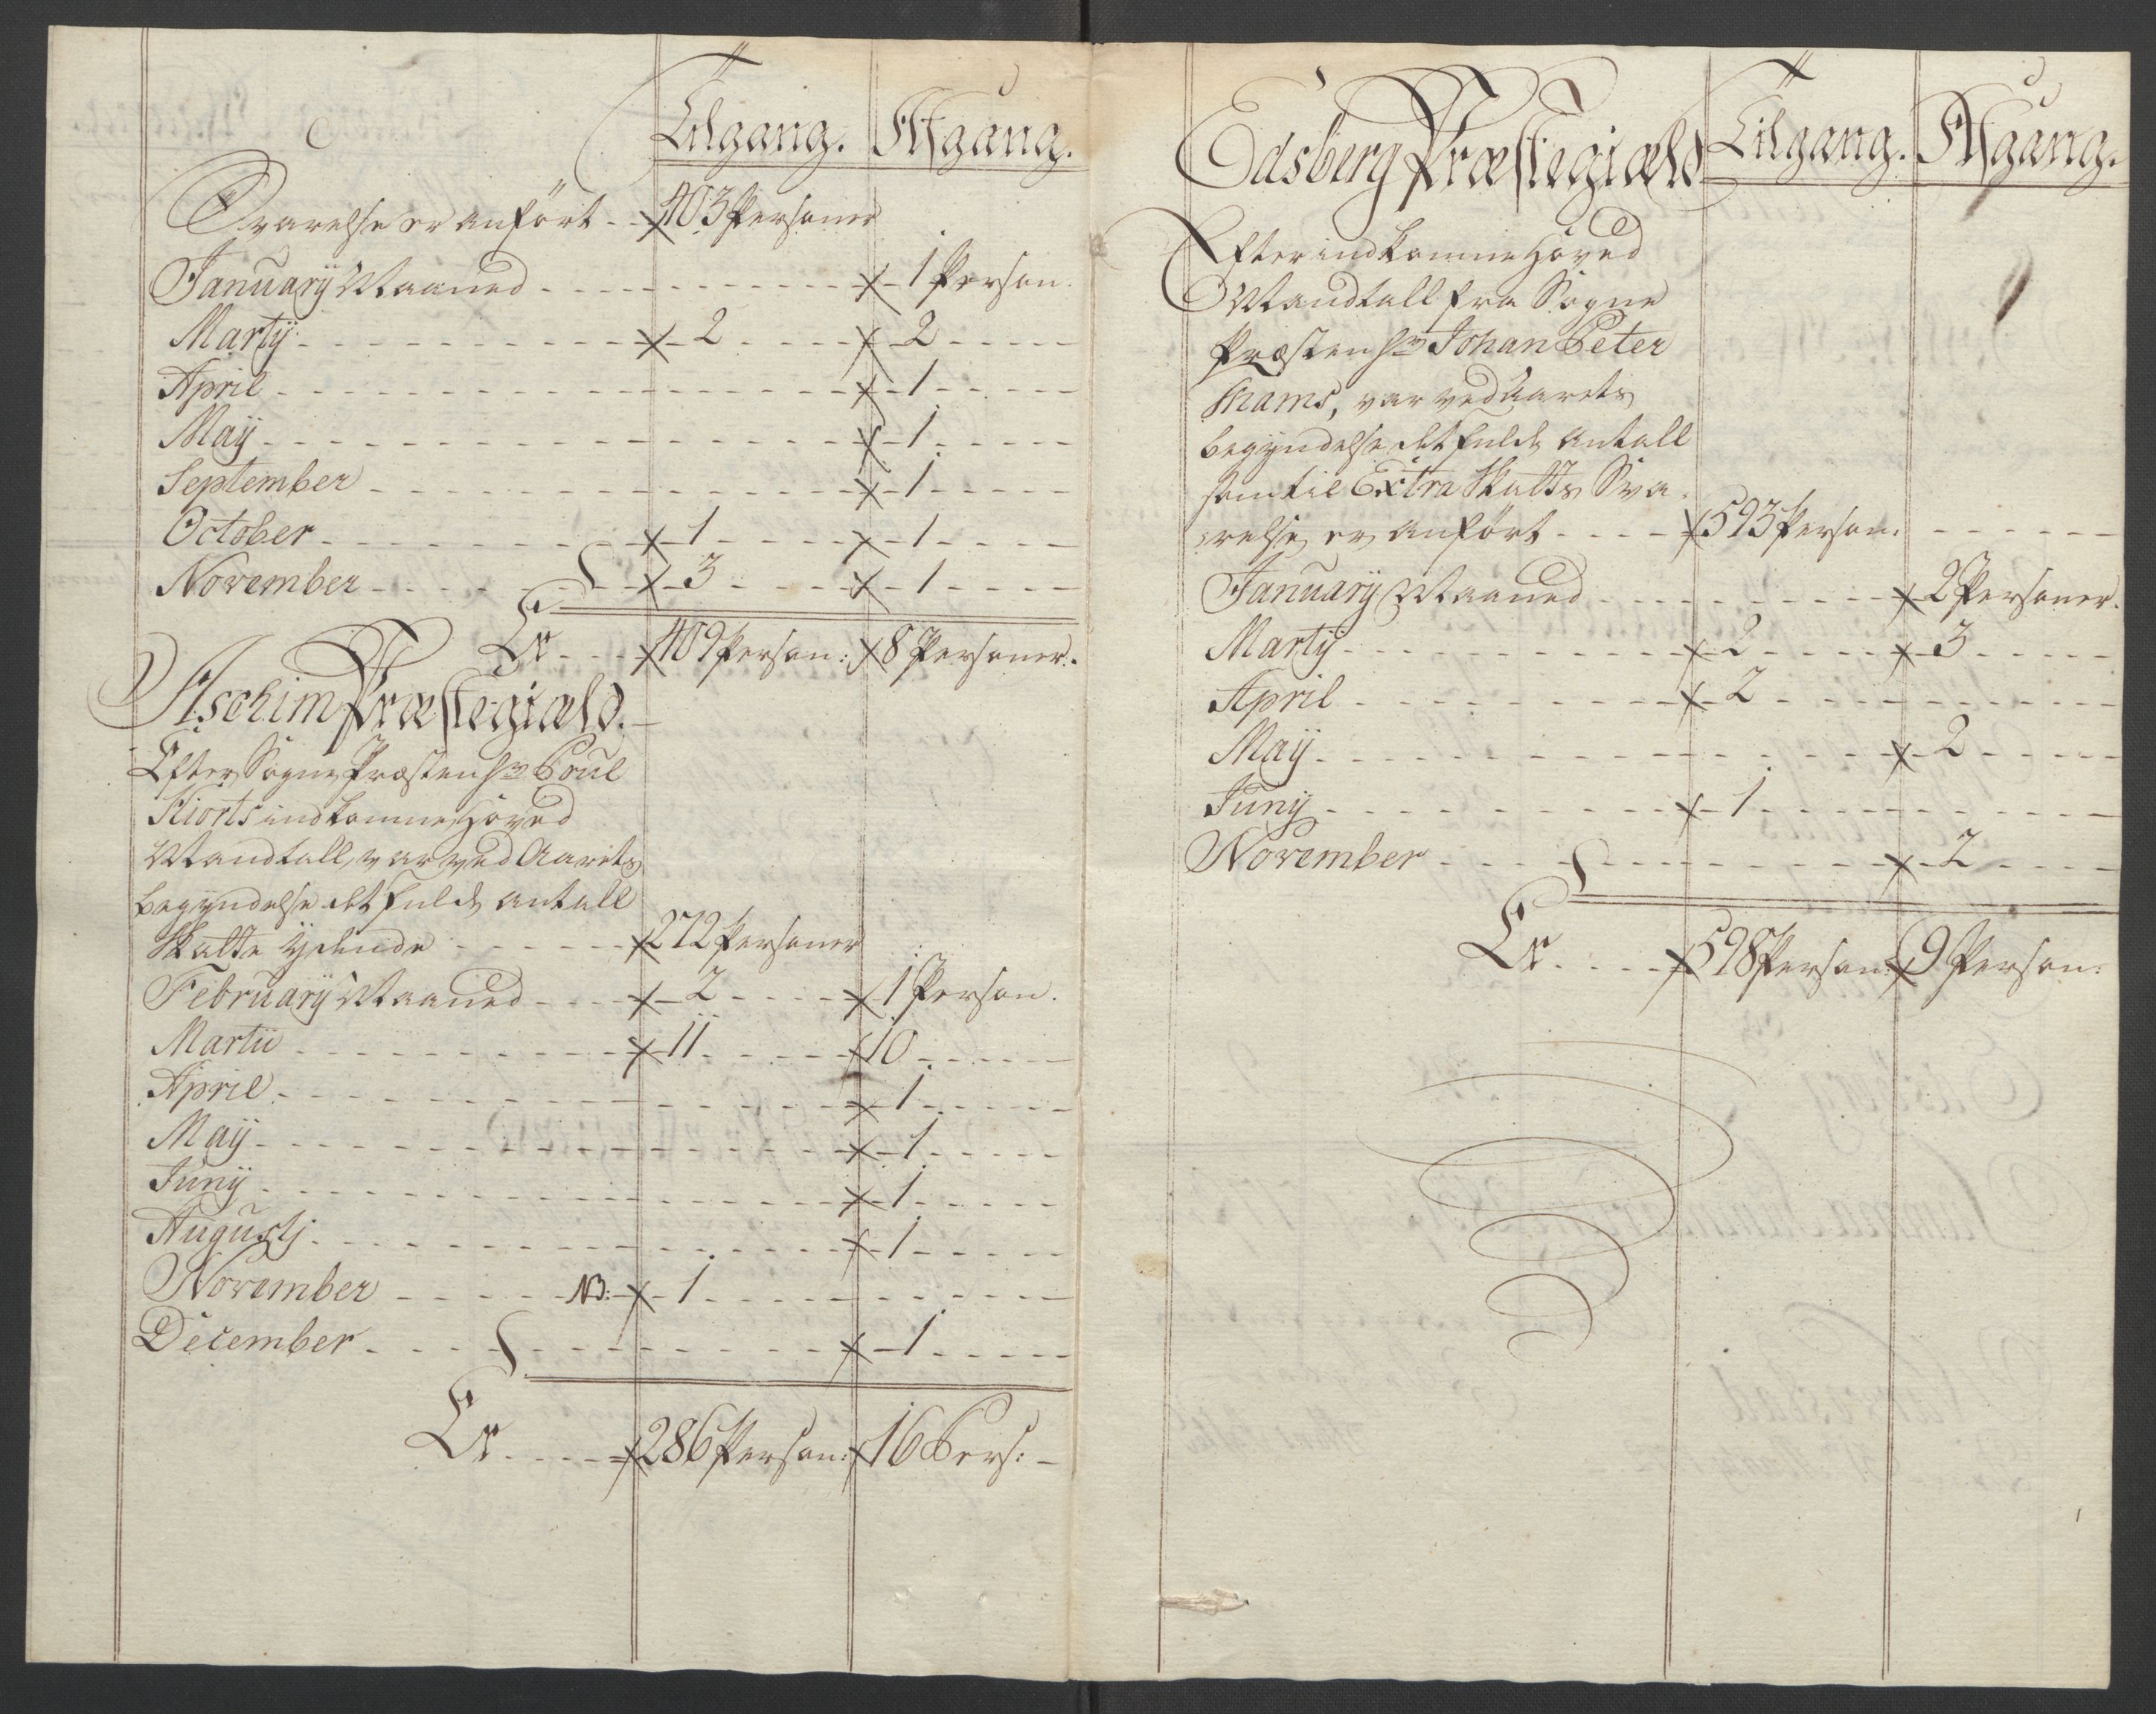 Tilgang. Afgang.
Svarelse er anført - 403 Personer
January Maaned - 1 Person.
Martij - 2 - 2
April - 1
Maij - 1
September - 1
October - 1 - 1
November - 3 - 1
Er - 409 Person: 8 Personer.
Aschim Præstegiæld.
Efter Sogne Præsten Hr Poul
Kiorts indkomne Hoved
Mandtall, var ved Aarets
begyndelse det fulde antall
Skatte ydende - 272 Personer
February Maaned - 2 - 1 Person.
Martii - 11 - 10
April - 1
Maij - 1
Junij - 1
Augustj - 1
November - NB: 1
December - 1
Er - 286 Person: 16 Pers:
Edsberg Præstegiæld Tilgang. Afgang.
Efter indkomne Hoved
Mandtall fra Sogne
Præsten Hr Johan Peter
, var ved Aarets
begyndelse det fulde Antall
som til Extra Skatts Sva-
relse er anført - 593 Person:
January Maaned - 2 Personer.
Martij - 2 - 3
April - 2
Maij - 2
Junij - 1
November - 2
Er - 598 Person: 9 Person: